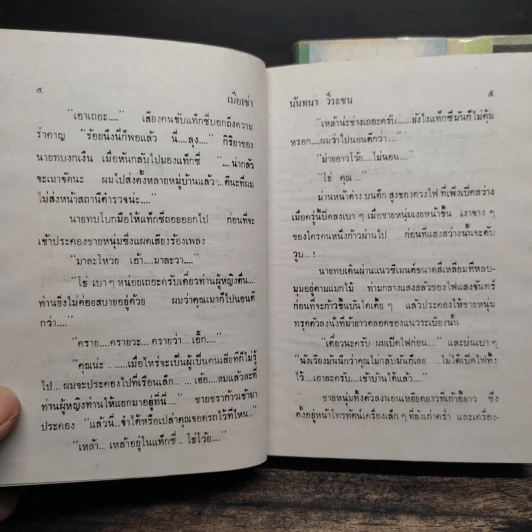 ๔ เมียเช่า
"เอาเถอะ...." เสียงคนขับแท็กซี่บอกถึงความ
รำคาญ "ร้อยนึงนี่ก็พอแล้ว นี่....ลุง...." กิริยาของ
นายทบงกเงิ่น เมื่อหันกลับไปมองแท็กซี่ "...น่ากลัว
จะเมาจัดนะ ผมไปส่งตั้งหลายหมู่บ้านแล้ว...ดีนะที่ผม
ไม่ส่งหน้าสถานีตำรวจน่ะ...."
นายทบโบกมือให้แท็กซี่ถอยออกไป ก่อนที่จะ
เข้าประคองชายหนุ่มซึ่งแผดเสียงร้องเพลง
"มาละโหวย เอ้า....มาละวา...."
"โธ่ เบา ๆ หน่อยเถอะครับเดี๋ยวท่านผู้หญิงตื่น....
ท่านยิ่งไม่ค่อยสบายอยู่ด้วย ผมว่าคุณเมาก็ไปนอนดี
กว่า...."
"คราย....ครายวะ... ครายว่า... เอิ๊ก...."
"คุณน่ะ .. ......เมื่อไหร่จะเป็นผู้เป็นคนเสียทีก็ไม่รู้
ไป... ผมจะประคองไปที่เรือนเล็ก... ...เฮ้อ...สมแล้วละที่
ท่านผู้หญิงท่านให้แยกมาอยู่ที่นี่ ...." ชายชราก้าวเข้ามา
ประคอง "แล้วนี่..จำได้หรือเปล่าคุณจอดรถไว้ที่ไหน..."
"เหล้า... เหล้าอยู่ในแท็กซี่ .. โธ่โว้ย...."
นันทนา วีระชน ๕
"เหล้าน่ะช่างเถอะครับ......ยังไงแท็กซี่มันก็ไม่คุ้ม
หรอก....ผมว่าไปนอนดีกว่า...."
"ม่ายอาวโว้ย....ไม่นอน...."
"โธ่ คุณ...."
ม่านหน้าต่าง บนตึก สูงของดวงไฟ ที่เพิ่งเปิดสว่าง
เมื่อครู่นี้ปิดลงเบา ๆ เมื่อชายหนุ่มเงยหน้าขึ้น เงาจาง ๆ
ของใครคนหนึ่งก้าวผ่านไป ก่อนที่แสงสว่างนั้นจะดับ
วูบ... !
นายทบเดินผ่านแนวซีเมนต์ขนาดสี่เหลี่ยมที่หลบ-
มุมอยู่ตามแมกไม้ ท่ามกลางแสงสลัวของไฟแสงจันทร์
ก่อนที่จะก้าวขึ้นบันไดเตี้ย ๆ แล้วประคองให้ชายหนุ่ม
ทรุดตัวลงนั่งที่ม้ายาวตลอดของแนวระเบียงนั้น
"เดี๋ยวนะครับ ผมเปิดไฟก่อน...." และบ่นเบา ๆ
"นังเวียงมันนึกว่าคุณไม่กลับมันก็เลย ...ไม่ได้เปิดไฟทิ้ง
ไว้....เอาละครับ...เข้าบ้านได้แล้ว...."
ชายหนุ่มทิ้งตัวลงนอนเหยียดยาวที่เก้าอี้ยาว ซึ่ง
ตั้งอยู่หน้าโทรทัศน์เครื่องเล็ก ๆ ที่ยังเก่าคร่ำ และเครื่อง-